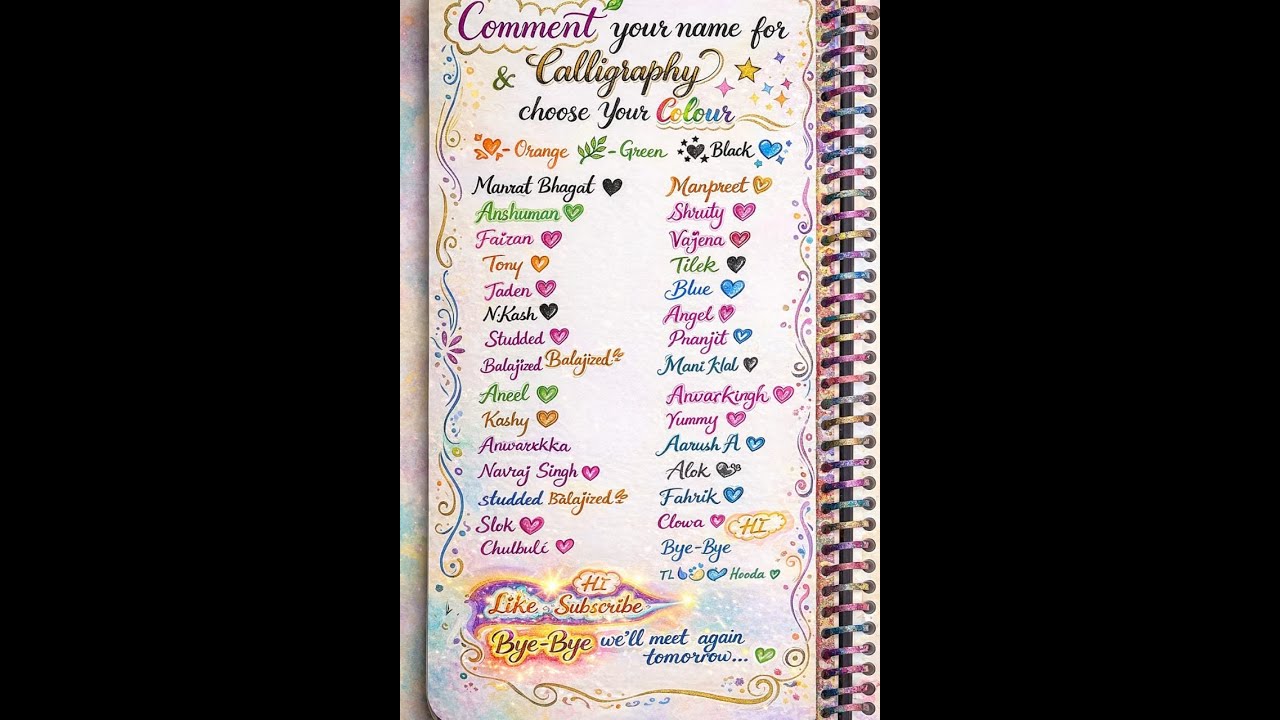 Comment your name for
& Calligraphy
choose Your Colour
- Orange - Green Black
Manrat Bhagat
Anshuman
Faizan
Tony
Jaden
N.Kash
Studded
Balajized Balajized
Aneel
Kashy
Anwarxkka
Navraj Singh
studded Balajized
Slok
Chulbulć
Manpreet
Shruty
Vajena
Tilek
Blue
Angel
Pranjit
Mani Klal
Anwarkingh
Yummy
Aarush A
Alok
Fahrik
Clowa HI
Bye-Bye
TL Hooda
HI
Like Subscribe
Bye-Bye we'll meet again
tomorrow...